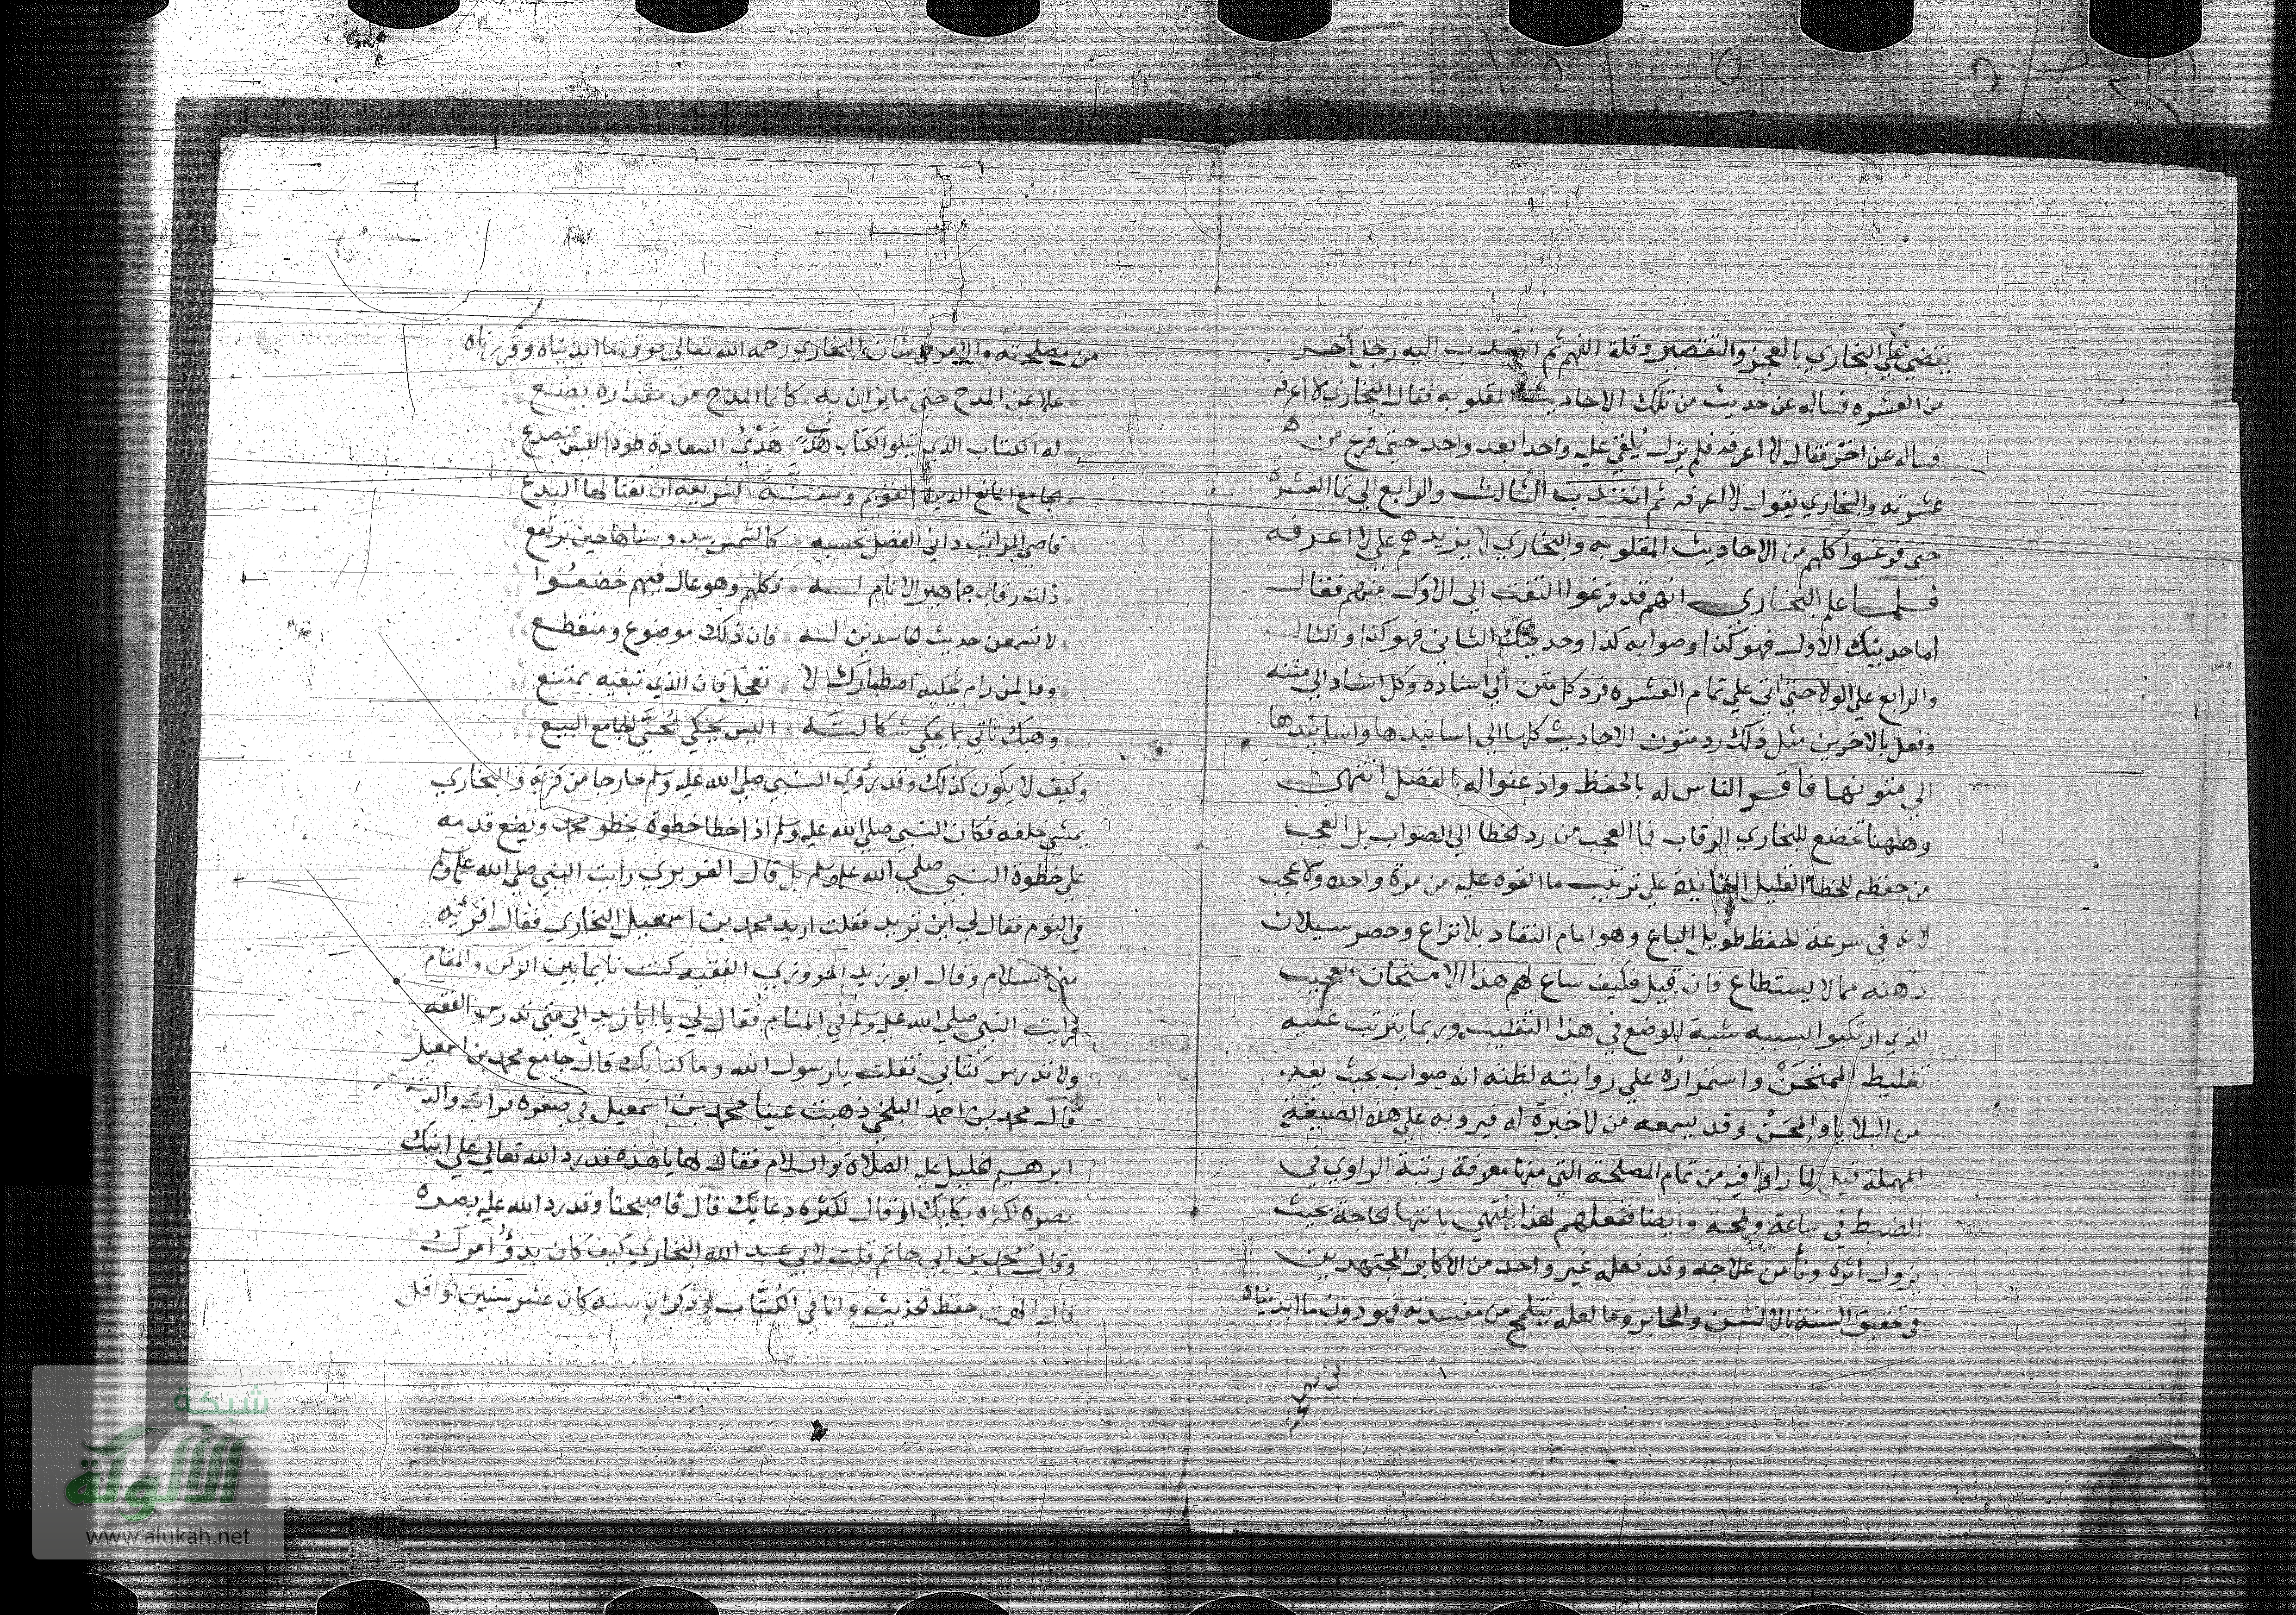 يقضي علي البخاري بالعجز والتقصير وقلة الفهم ثم انتدب اليه رجل اخر
من العشره فساله عن حديث من تلك الاحاديث المقلوبه فقال البخاري لا اعرفه
فساله عن اخر فقال لا اعرفه فلم يزل يلقي عليه واحدا بعد واحد حتى فرغ من
عشرته والبخاري يقول لا اعرفه ثم انتدب الثالث والرابع الي تمام العشرة
حتى فرغوا كلهم من الاحاديث المقلوبه والبخاري لا يزيدهم علي لا اعرفه
فلما علم البخاري انهم قد فرغوا التفت الي الاول منهم فقال
اما حديثك الاول فهو كذا وصوابه كذا وحديثك الثاني فهو كذا والثالث
والرابع علي الولا حتى اتي علي تمام العشره فرد كل متن الي اسناده وكل اسناد الي متنه
وفعل بالاخرين مثل ذلك رد متون الاحاديث كلها الي اسانيدها واسانيدها
الي متونها فاقر الناس له بالحفظ واذعنوا له بالفضل انتهى
وههنا تخضع للبخاري الرقاب فما العجب من رد الخطا الي الصواب بل العجب
من حفظه للخطا علي ترتيب ما القوه عليه من مرة واحده ولا عجب
لانه في سرعة الحفظ طويل الباع وهو امام النقاد بلا نزاع وحصر سيلان
ذهنه مما لا يستطاع فان قيل فكيف ساغ لهم هذا الامتحان العجيب
الذي ارتكبوا بسببه شبه الوضع في هذا التقليب وربما يترتب عليه
تغليط الممتحن واستمراره علي روايته لظنه انه صواب بحيث يعد
من البلايا والمحن وقد يسمعه من لا خبرة له فيرويه علي هذه الصيغة
المهملة قيل لما راوا فيه من تمام المصلحة التي منها معرفة رتبة الراوي في
الضبط في ساعة ولمحة وايضا ففعلهم هذا ينتهي بانتها الحاجة بحيث
يزول اثره ونأمن علاجه وقد فعله غير واحد من الاكابر المجتهدين
في تحقيق السنة بالالسن والمحابر وما لعله يتلمح من مفسدته فهو دون ما ابديناه
من مصلحته
من مصلحته والامر في شان البخاري رحمه الله تعالي فوق ما ابديناه وقررناه
علا عن المدح حتى ما يزان به كانما المدح من مقداره يضع
له الكتاب الذي يتلوا الكتاب هدى هذي السعادة طود ليس ينصدع
الجامع المانع الدين القويم وسنة الشريعه ان تغتالها البدع
قاصي المراتب داني الفضل تحسبه كالشمس يبدو سناها حين ترتفع
ذلت رقاب جماهير الانام له فكلهم وهو عال فيهم خضعوا
لا تسمعن حديث الحاسدين له فان ذلك موضوع ومنقطع
وقل لمن رام يحكيه اصطبارك لا تعجل فان الذي تبغيه ممتنع
وهبك تاتي بما يحكي شكالته اليس يحكي محيا الجامع البيع
وكيف لا يكون كذلك وقد رؤي النبي صلي الله عليه وسلم خارجا من قرية والبخاري
يمشي خلفه فكان النبي صلي الله عليه وسلم اذا خطا خطوة يخطو محمد ويضع قدمه
علي خطوة النبي صلي الله عليه وسلم بل قال الفربري رايت النبي صلي الله عليه وسلم
في النوم فقال لي اين تريد فقلت اريد محمد بن اسمعيل البخاري فقال اقرئه
مني السلام وقال ابو زيد المروزي الفقيه كنت نايما بين الركن والمقام
فرايت النبي صلي الله عليه وسلم في المنام فقال لي يا ابا زيد الي متى تدرس الفقه
ولا تدرس كتابي فقلت يا رسول الله وما كتابك قال جامع محمد بن اسمعيل
قال محمد بن احمد البلخي ذهبت عينا محمد بن اسمعيل في صغره فرات والدته
ابرهيم الخليل عليه الصلاة والسلام فقال لها يا هذه قد رد الله تعالي علي ابنك
بصره لكثره بكايك او قال لكثره دعايك قال فاصبحنا وقد رد الله عليه بصره
وقال محمد بن ابي حاتم قلت لابي عبد الله البخاري كيف كان بدؤ امرك
قال الهمت حفظ الحديث وانا في الكتاب وذكر ان سنه كان عشر سنين او اقل
شبكة
الألوكة
www.alukah.net